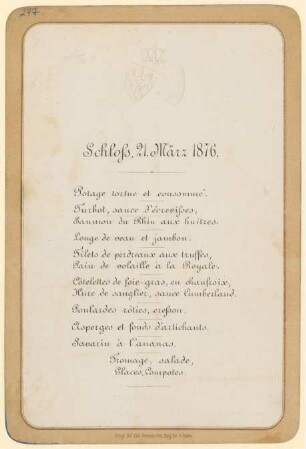 247
Schloß, 21. März 1876.
Potage tortue et consommé.
Turbot, sauce d'écrevisses,
Saumon du Rhin aux huîtres.
Longe de veau et jambon.
Filets de perdreaux aux truffes,
Pain de volaille à la Royale.
Côtelettes de foie-gras, en chaufroix,
Hure de sanglier, sauce Cumberland.
Poulardes rôties, cresson.
Asperges et fonds d'artichauts.
Savarin à l'ananas.
Fromage, salade,
Glaces, Compotes.